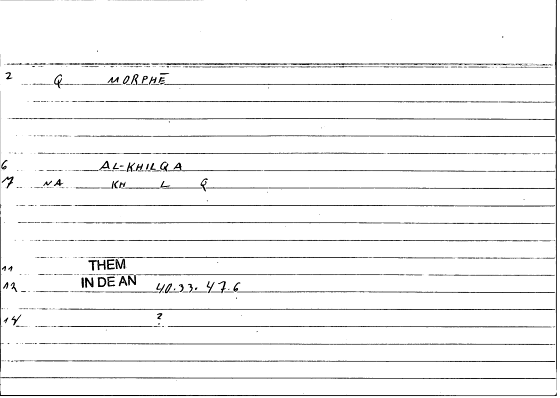 2 Q MORPHĒ
6 AL-KHILQA
7 NA KH L Q
11 THEM
12 IN DE AN 40.33. 47.6
14 ?